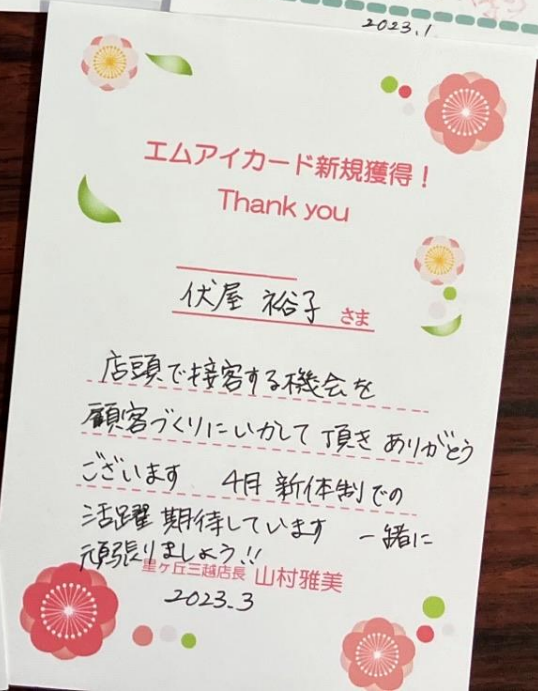 2023.1
エムアイカード新規獲得！
Thank you
伏屋 裕子 さま
店頭で接客する機会を
顧客づくりにいかして頂き ありがとう
ございます 4月 新体制での
活躍 期待しています 一緒に
頑張りましょう!!
星ヶ丘三越店長 山村雅美
2023.3